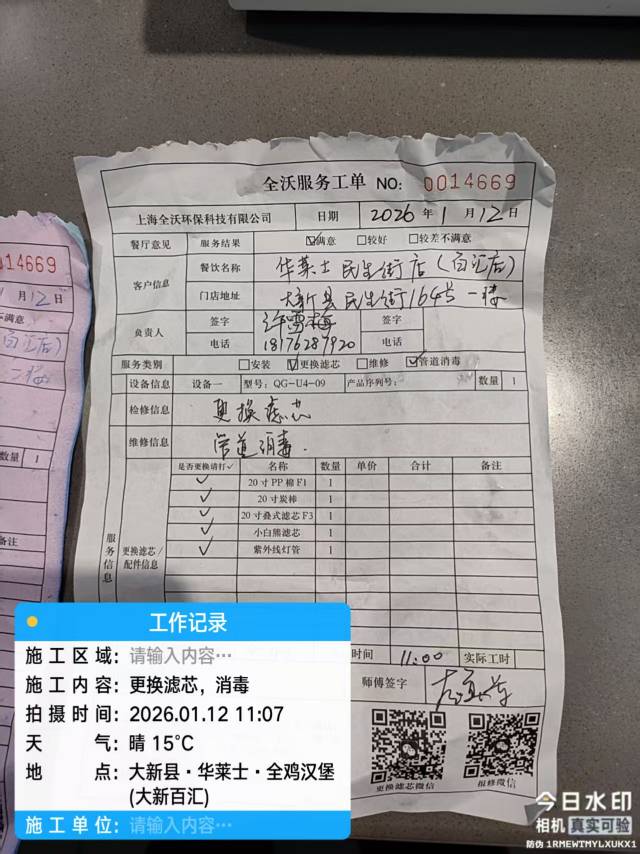 全沃服务工单 NO: 0014669
上海全沃环保科技有限公司 日期 2026年1月12日
餐厅意见 服务结果 ☑满意 □较好 □较差不满意
客户信息 餐饮名称 华莱士民生街店(百汇店)
门店地址 大新县民生街164号一楼
负责人 签字 许雪梅 签字
电话 18176287920 电话
服务类别 □安装 ☑更换滤芯 □维修 ☑管道消毒
设备信息 设备一 型号: QG-U4-09 产品序列号: 数量 1
检修信息 更换滤芯
维修信息 管道消毒.
服务信息 更换滤芯/配件信息 是否更换请打✓ 名称 数量 单价 合计 备注
✓ 20寸PP棉F1 1
✓ 20寸炭棒 1
✓ 20寸叠式滤芯F3 1
✓ 小白熊滤芯 1
✓ 紫外线灯管 1
时间 11:00 实际工时
师傅签字
更换滤芯微信 报修微信
014669
月12日
不满意
百汇店)
一楼
数量 1
备注
工作记录
施工区域: 请输入内容…
施工内容: 更换滤芯，消毒
拍摄时间: 2026.01.12 11:07
天气: 晴 15℃
地点: 大新县·华莱士·全鸡汉堡
(大新百汇)
施工单位: 请输入内容…
今日水印
相机 真实可验
防伪 1RMEWTMYLXUKX1